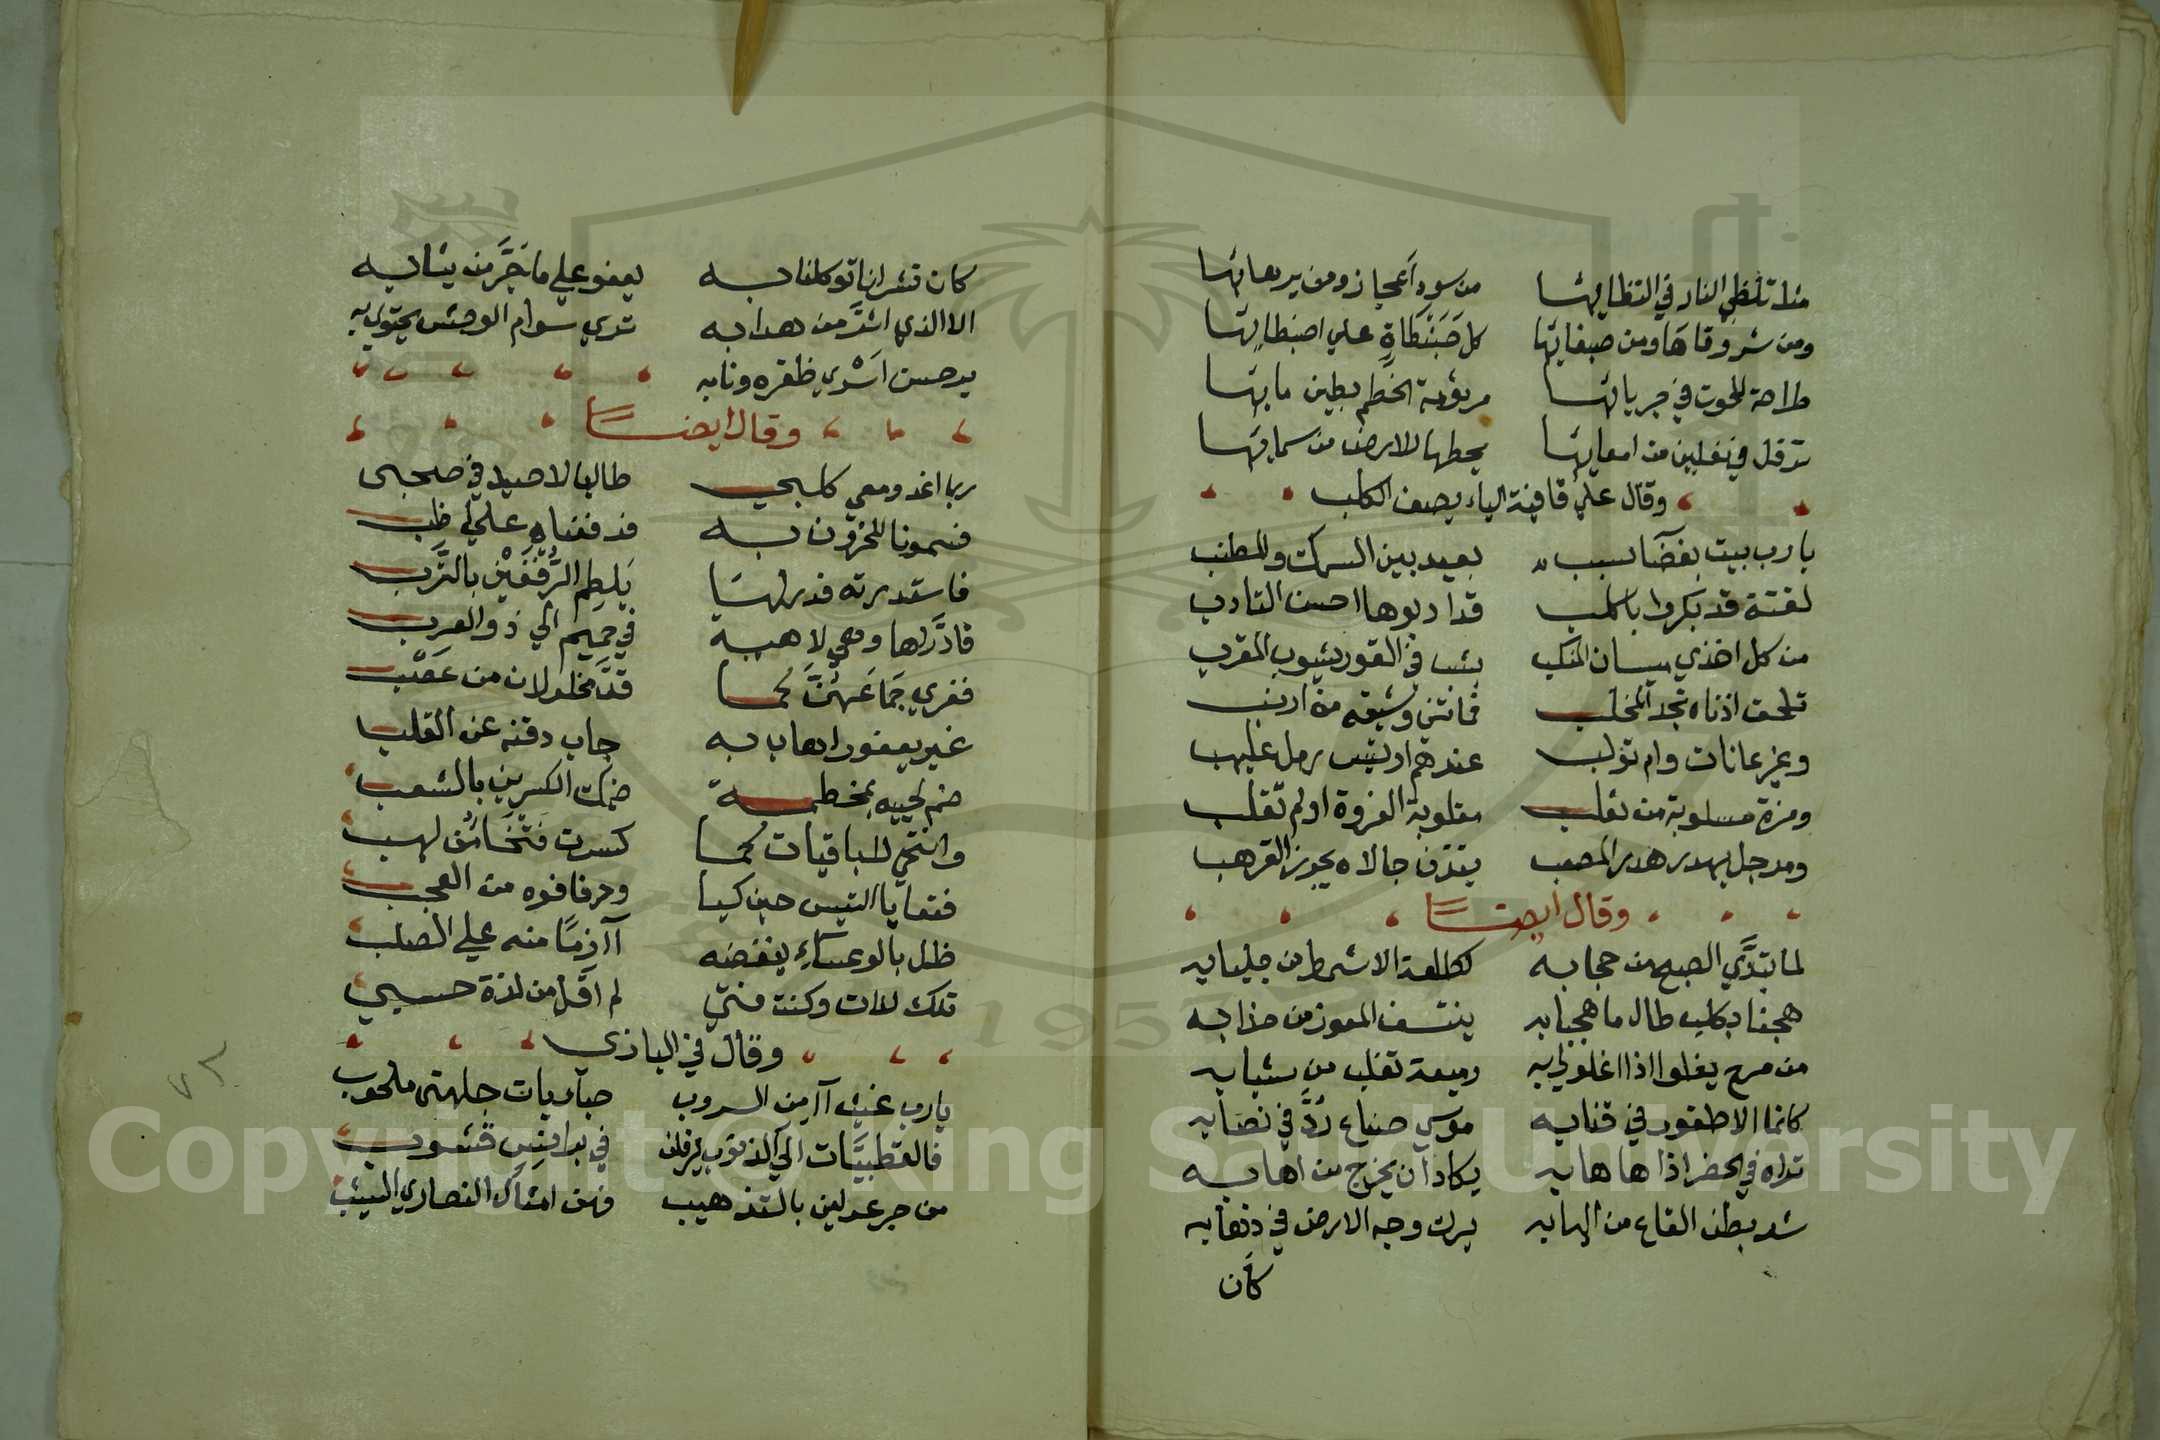 مثل تلظي النار في التظائها من سود أعجاز ومن يرهائها
ومن شروقاها ومن صبغائها كل حبنطاة علي اضبطائها
طراحة للحوت في جريائها مربوبة الخطم بطين مائها
ترفل في نعلين من امعائها يحطها للارض من سمائها
وقال علي قافية الباء يصف الكلب
يا رب بيت بفضآ سبسب بعيد بين السمك والمطنب
لفتية قد بكروا باكلب قد ادبوها احسن التادب
من كل اخذي ميسان المنكب يشب في القود شبوب المقرب
تلحق اذناه تجد المخلب فما تني وشيقه من ارنب
وعيز عانات وام تولب عندهم او تيس رمل علهب
ومزة مسلوبة من ثعلب مقلوبة الفروة او لم تقلب
ومرجل يهدر هدر المصعب يقذف جالاه بجوز القرهب
وقال ايضا
لما تبدي الصبح من حجابه كطلعة الاشمط من جلبابه
هجنا بكلب طال ما هجنا به ينتسف المقود من جذابه
من مرح يغلوا اذا اغلولي به وميعة تغلب من شبابه
كانما الاظفور في قنابه موسي صناع رد في نصابه
تراه في الحضر اذا هاها به يكاد أن يخرج من اهابه
شد ببطن القاع من الهابه يترك وجه الارض في ذهابه
كأن
كان نشرانا توكلنا به يعفو علي ما جر من ثيابه
الا الذي اثر من هدابه تري سوام الوحش يحتوي به
يرحن اسري ظفره ونابه
وقال ايضا
ربما اغدو ومعي كلبي طالبا لا صيد في صحبي
فسمونا للحزون به فدفعناه علي اظب
فاستدرته فدر لها يلطم الرفغين بالترب
فادرلها وهي لاهية في جميم الحي ذو الغرب
ففري جماعهن كما قد مخلولان من عصب
غير يعفور اهاب به جاب دفيه عن القلب
ضم لحييه بمخطمه ضمك الكسرين بالشعب
وانتحي للباقيات كما كسرت فتخاء من لهب
فتعايا التيس حين كبا ودنا فوه من العجب
ظل بالوعساء ينفضه آارما منه علي الصلب
تلك لذات وكنت فتي لم اقل من لذة حسبي
وقال في البازي
يا رب غيث آمن السروب حباريات جلهتي ملحوب
فالقطبيات الي الذنوب يرفلن في برانس قشوب
من حبر عدلين بالتذهيب فهن امثال النصاري الشيب
٧٢